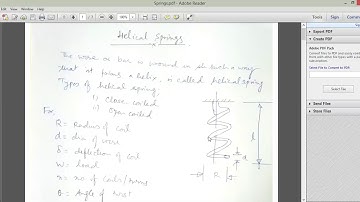 Springs.pdf - Adobe Reader
Tools
Sign
Comment
Helical Springs
The wire or bar is wound in such a way
that it forms a helix, is called helical spring
Types of helical spring
i) Close coiled
ii) Open coiled
For,
R = Radius of coil
d = dia of wire
δ = deflection of coil
W = Load
n = no of coils/turns
θ = Angle of twist
l
d
R
Export PDF
Create PDF
Adobe PDF Pack
Select File to Convert to PDF:
Convert
Edit PDF
Send Files
Store Files